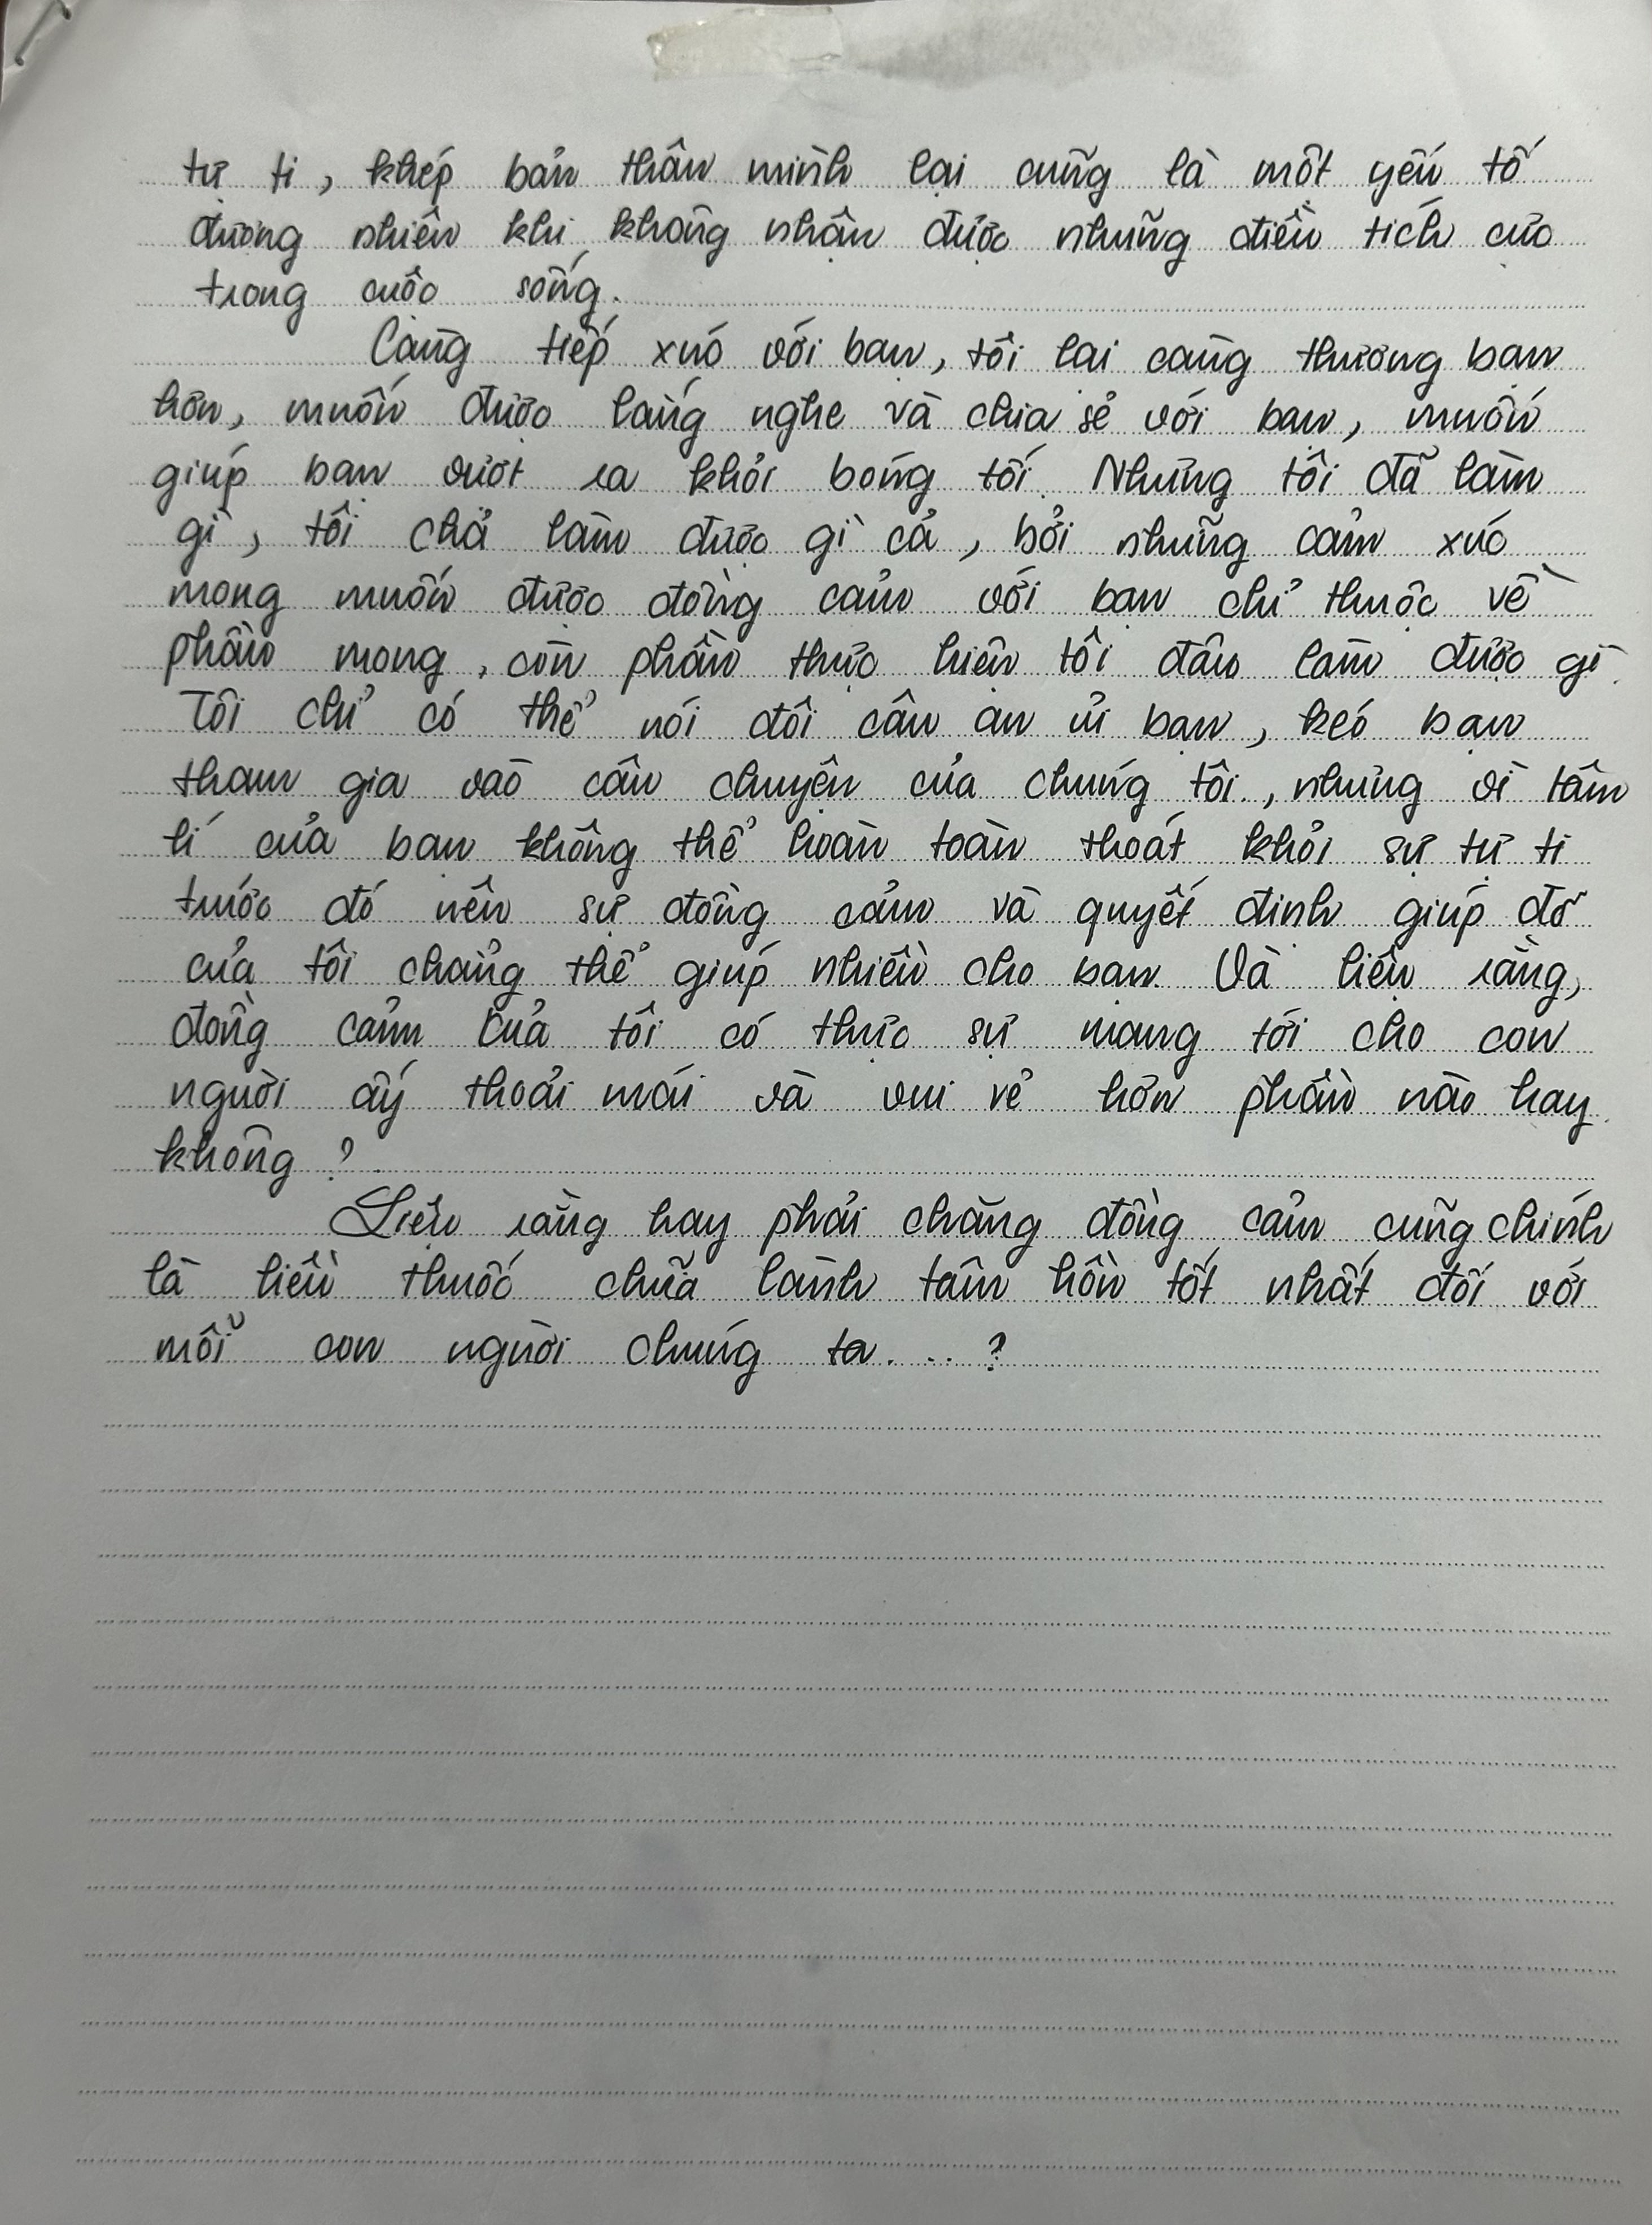 tự ti, khép bản thân mình lại cũng là một yếu tố
đương nhiên khi không nhận được những điều tích cực
trong cuộc sống.
Càng tiếp xúc với bạn, tôi lại càng thương bạn
hơn, muốn được lắng nghe và chia sẻ với bạn, muốn
giúp bạn vượt ra khỏi bóng tối. Nhưng tôi đã làm
gì, tôi chả làm được gì cả, bởi những cảm xúc
mong muốn được đồng cảm với bạn chỉ thuộc về
phần mong, còn phần thực hiện tôi đâu làm được gì.
Tôi chỉ có thể nói đôi câu an ủi bạn, kéo bạn
tham gia vào câu chuyện của chúng tôi, nhưng vì tâm
lí của bạn không thể hoàn toàn thoát khỏi sự tự ti
trước đó nên sự đồng cảm và quyết định giúp đỡ
của tôi chẳng thể giúp nhiều cho bạn. Và liệu rằng,
đồng cảm của tôi có thực sự mang tới cho con
người ấy thoải mái và vui vẻ hơn phần nào hay
không ?
Liệu rằng hay phải chăng đồng cảm cũng chính
là liều thuốc chữa lành tâm hồn tốt nhất đối với
mỗi con người chúng ta... ?